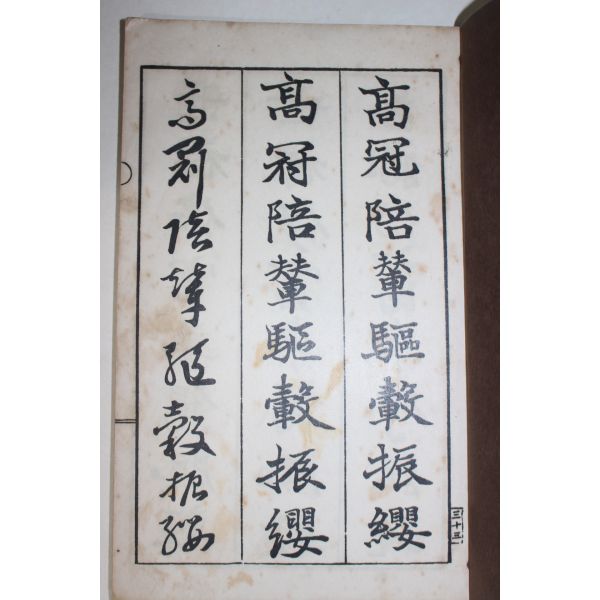 高冠陪輦驅轂振纓
高冠陪輦驅轂振纓
高冠陪輦驅轂振纓
三十三